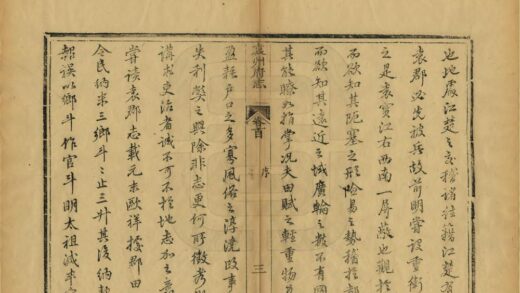 也地處江楚之交稽諸往籍江楚有
袁郡必先被兵故前明嘗設重衛
之是袁實江右西南一屏蔽也觀於
而欲知其阨塞之形險易之勢稽於
而欲知其遠近之域廣輪之數不有圖
其能瞭如指掌况夫田賦之輕重物
盈耗戶口之多寡風俗之淳澆政事
袁州府志
卷首
序
三
失利獘之興除非志更何所徵考
講求吏治者誠不可不於地志加之意
嘗讀袁郡志載元末歐祥據郡田
令民納米三鄉斗々止三升其後納款
報誤以鄉斗作官斗明太祖減半